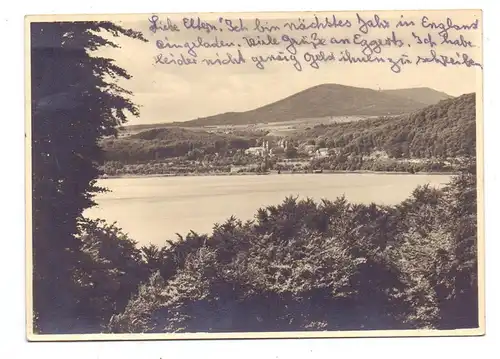 Liebe Eltern! Ich bin nächstes Jahr in England
eingeladen. Viele Grüße an Eggerts. Ich habe
leider nicht genug Geld ihnen zu schreiben